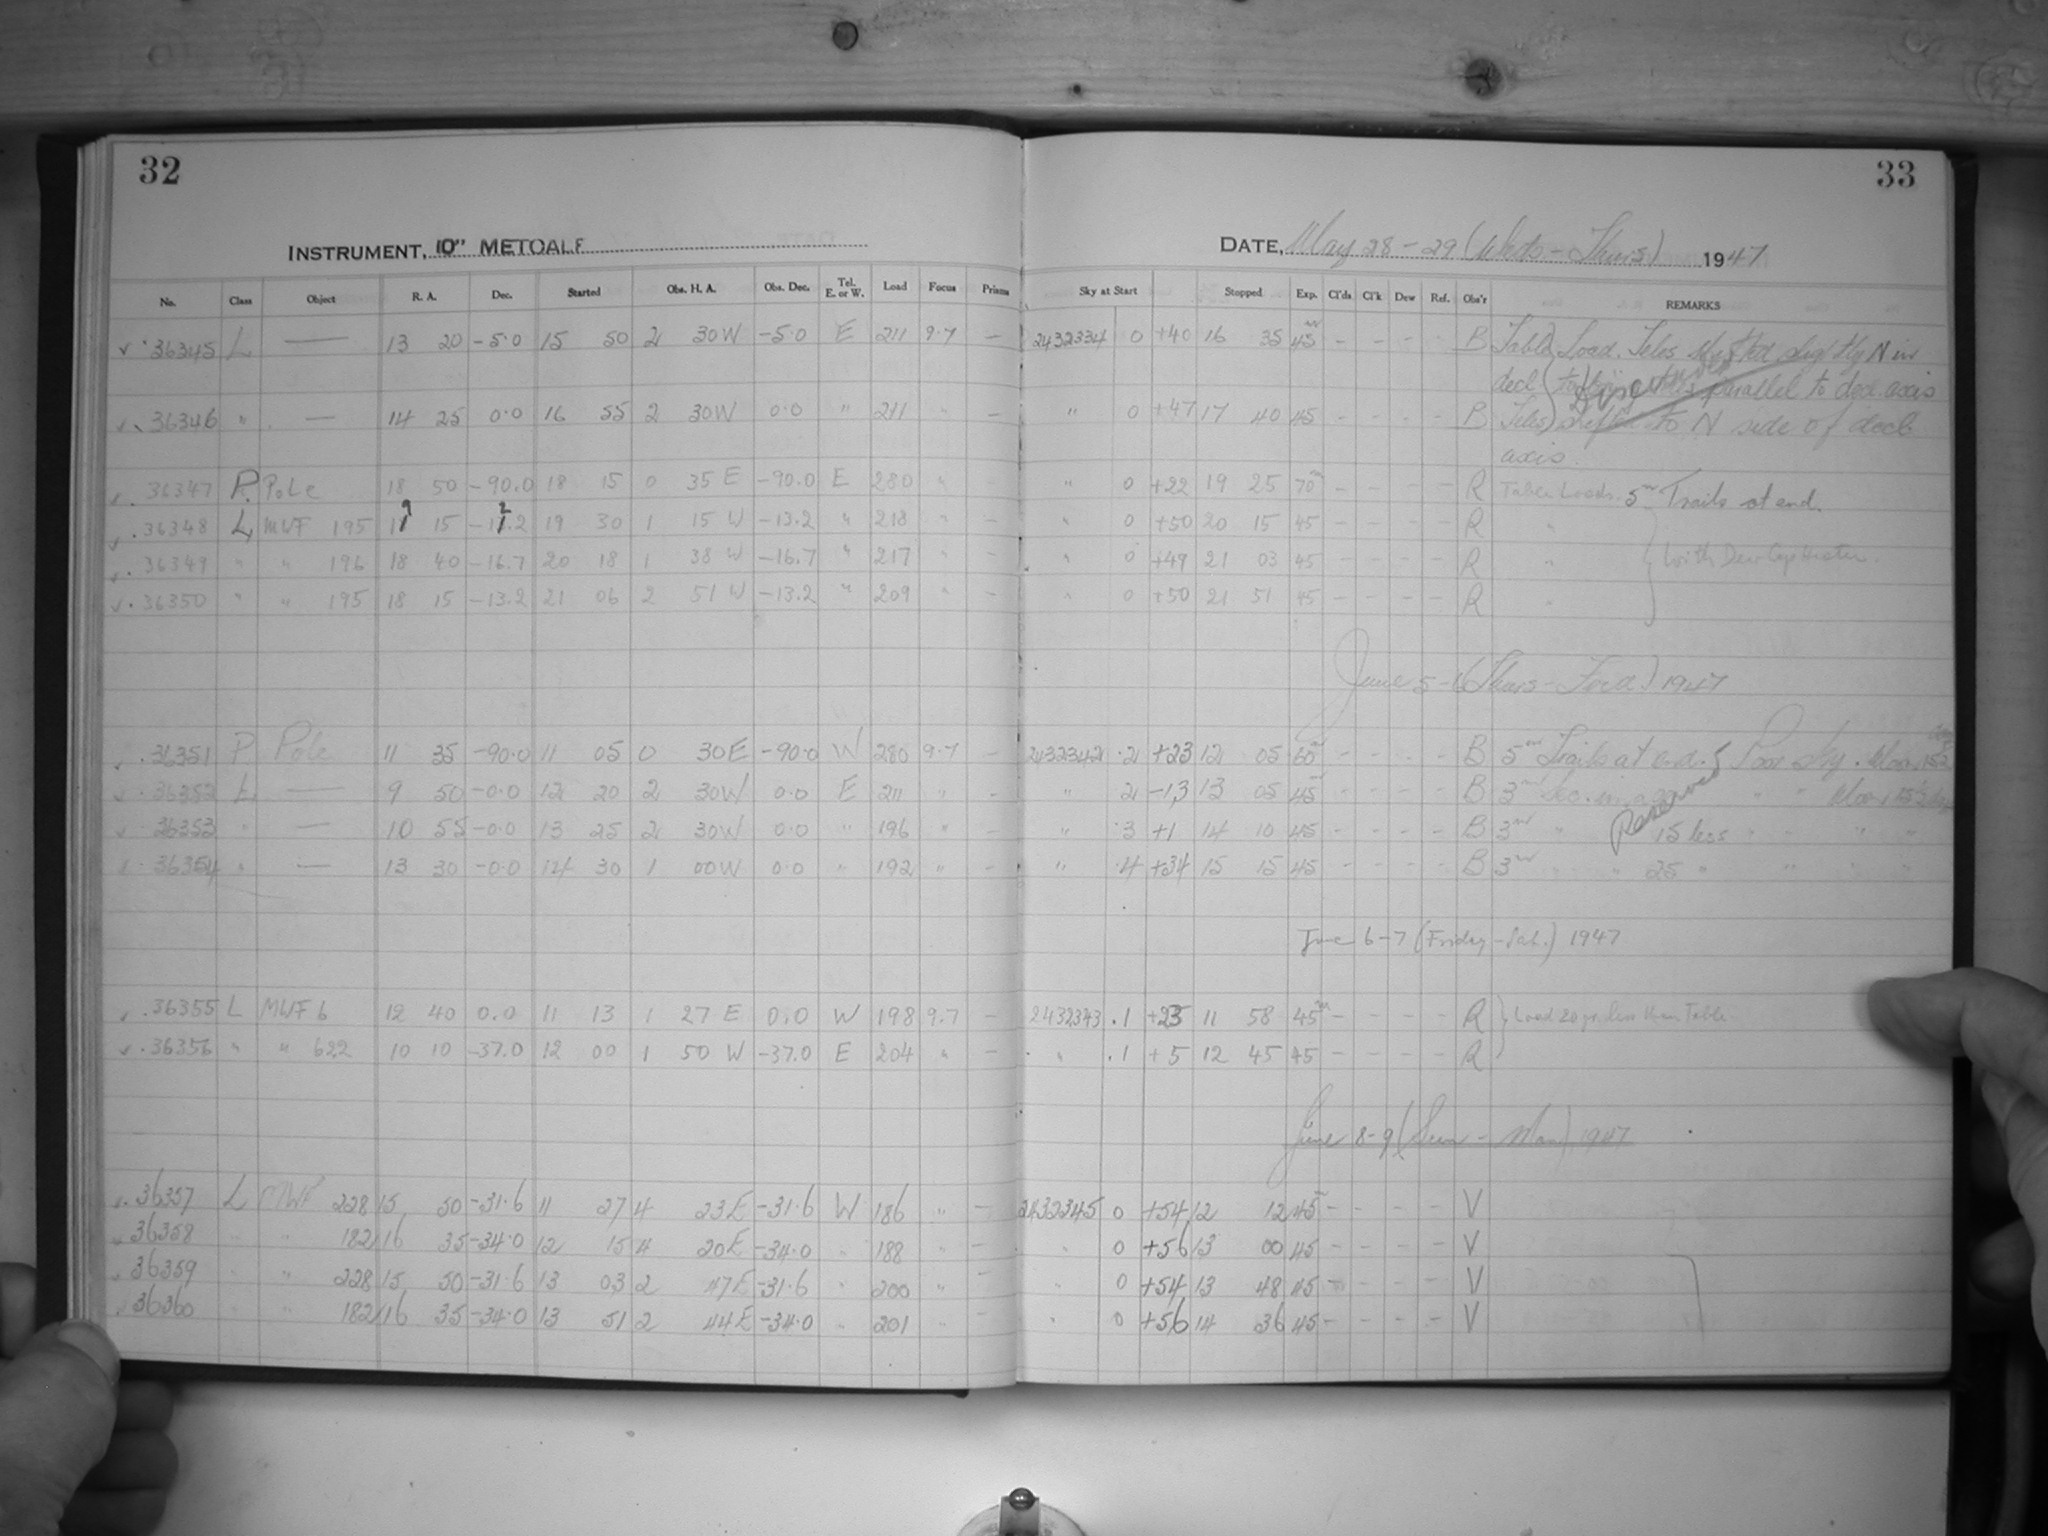 32
33
INSTRUMENT, 10" METCALF
DATE, May 28-29 (Weds-Thurs) 1947
No. Class Object R. A. Dec. Started Obs. H. A. Obs. Dec. Tel. E. or W. Load Focus Prism Sky at Start Stopped Exp. Cl'ds Cl'k Dew Ref. Obs'r REMARKS
36345 L — 13 20 -5.0 15 50 2 30W -5.0 E 211 9.7 — 2432334 0 +40 16 35 45m - - - - B Table Load. Teles. shifted slightly N in
decl. parallel to decl. axis
36346 " — 14 25 0.0 16 55 2 30W 0.0 " 211 " — " 0 +47 17 40 45 - - - - B Teles shifted to N side of decl
axis.
36347 P Pole 18 50 -90.0 18 15 0 35 E -90.0 E 280 " — " 0 +22 19 25 70m - - - - R Table Loads. 5m Trails at end.
36348 L MWF 195 15 19 30 1 15 W -13.2 " 218 " — " 0 +50 20 15 45 - - - - R "
36349 " " 196 18 40 -16.7 20 18 1 38 W -16.7 " 217 " 0 +49 21 03 45 - - - - R " With Dew Cap Heater.
36350 " " 195 18 15 -13.2 21 06 2 51 W -13.2 " 209 " — " 0 +50 21 51 45 - - - - R "
June 5- (Thurs- 1947
36351 P Pole 11 35 -90.0 11 05 0 30E -90.0 W 280 9.7 — 2432342 .2 +23 12 05 60m - - - - B 5m Trails at end. Poor sky. Moon
36352 L — 9 50 -0.0 12 20 2 30W 0.0 E 211 " — " .2 -13 13 05 45m - - - - B 3m " " Moon
36353 " — 10 55 -0.0 13 25 2 30W 0.0 " 196 " — " .3 +1 14 10 45 - - - - B 3m " 15 less " " " "
Reserved
36354 " — 13 30 -0.0 14 30 1 00W 0.0 " 192 " — " .4 +34 15 15 45 - - - - B 3m " " 25 " " " "
June 6-7 (Friday-Sat.) 1947
36355 L MWF 6 12 40 0.0 11 13 1 27 E 0.0 W 198 9.7 — 2432343 .1 +23 11 58 45m - - - - R Load 20 gr. less than Table
36356 " " 622 10 10 -37.0 12 00 1 50 W -37.0 E 204 " — " .1 +5 12 45 45 - - - - R
June 8-9 (Sun - Mon) 1947
36357 L MWF 228 15 50 -31.6 11 27 4 23E -31.6 W 186 " — 2432345 0 +54 12 12 45 - - - - V
36358 " " 182 16 35 -34.0 12 15 4 20E -34.0 " 188 " — " 0 +56 13 00 45 - - - - V
36359 " " 228 15 50 -31.6 13 03 2 47E -31.6 " 200 " — " 0 +54 13 48 45 - - - - V
36360 " " 182 16 35 -34.0 13 51 2 44E -34.0 " 201 " — " 0 +56 14 36 45 - - - - V